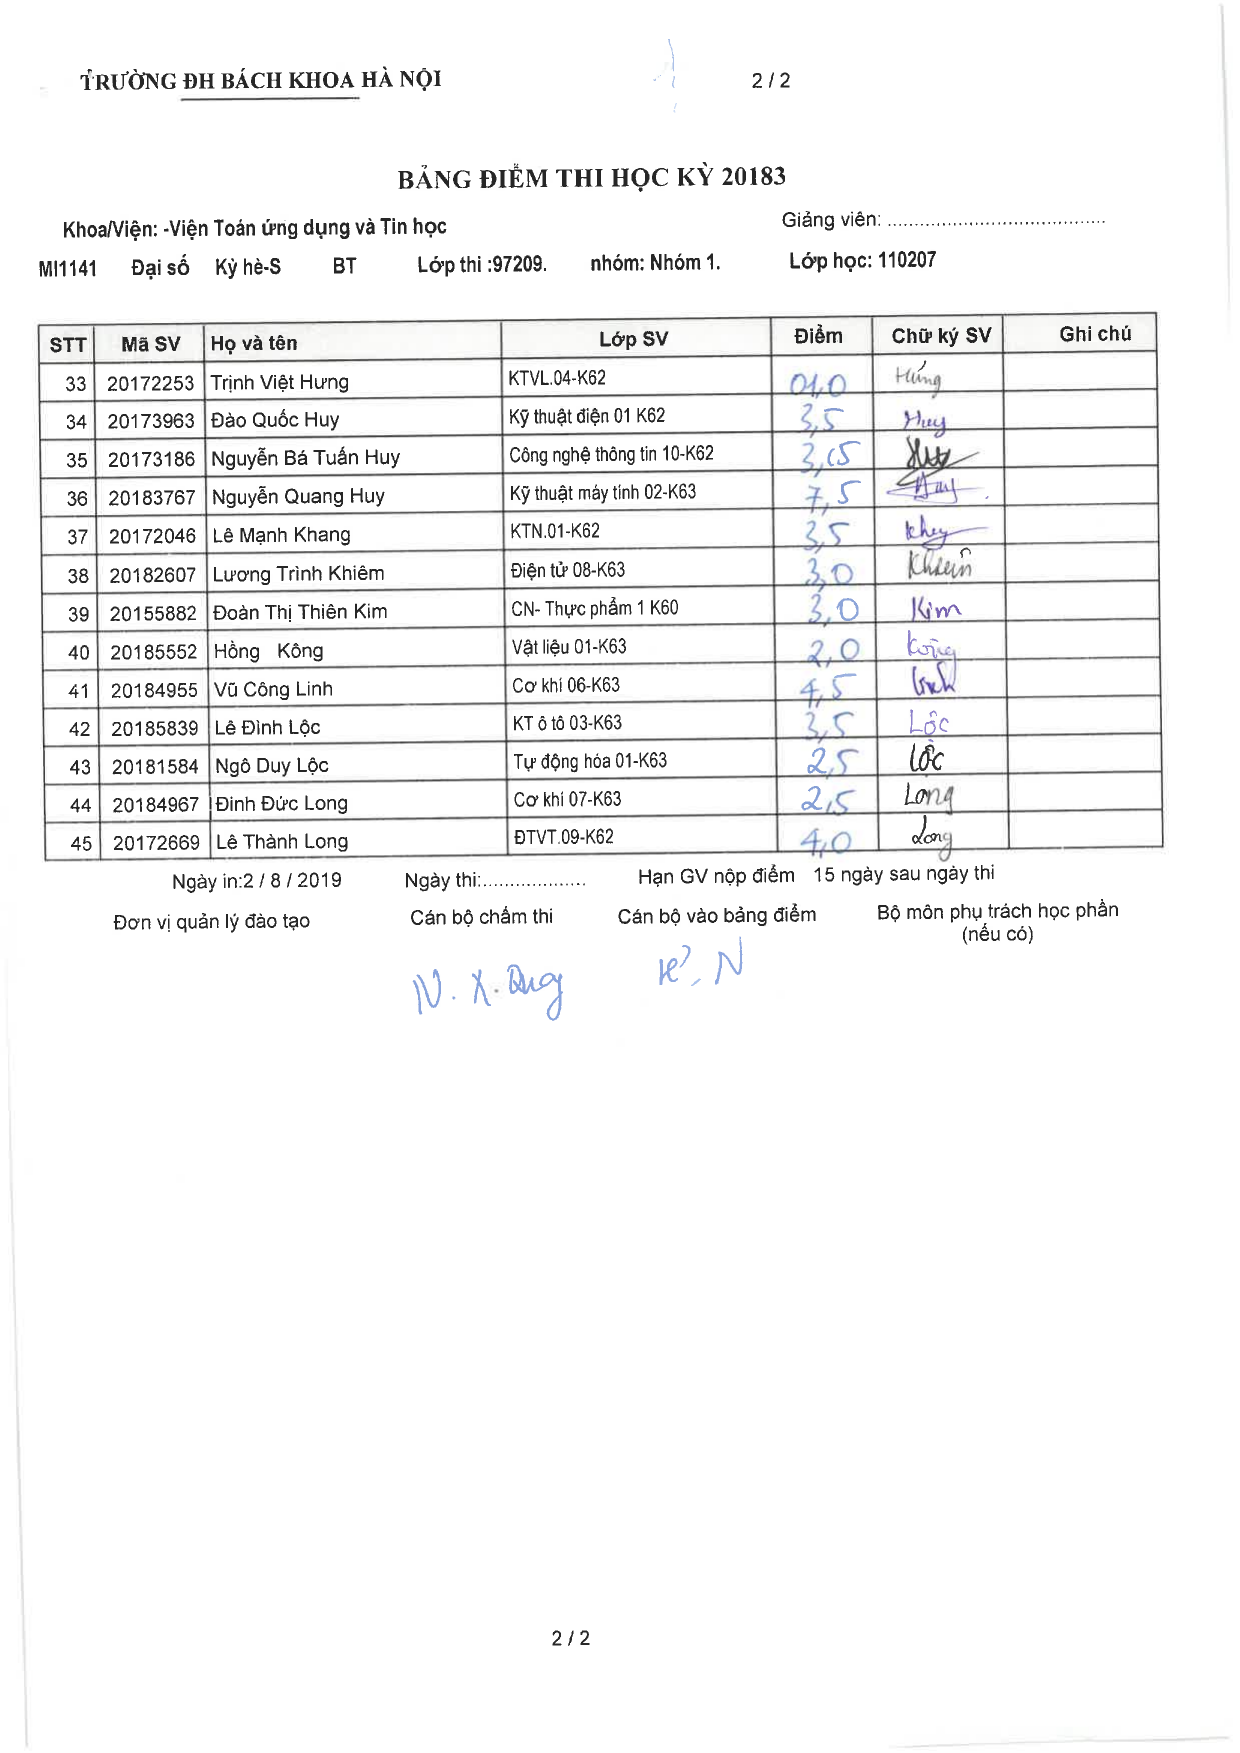 TRƯỜNG ĐH BÁCH KHOA HÀ NỘI 2 / 2
BẢNG ĐIỂM THI HỌC KỲ 20183
Khoa/Viện: -Viện Toán ứng dụng và Tin học Giảng viên: ........................................
MI1141 Đại số Kỳ hè-S BT Lớp thi :97209. nhóm: Nhóm 1. Lớp học: 110207
STT Mã SV Họ và tên Lớp SV Điểm Chữ ký SV Ghi chú
33 20172253 Trịnh Việt Hưng KTVL.04-K62 01,0 Hưng
34 20173963 Đào Quốc Huy Kỹ thuật điện 01 K62 3,5 Huy
35 20173186 Nguyễn Bá Tuấn Huy Công nghệ thông tin 10-K62
36 20183767 Nguyễn Quang Huy Kỹ thuật máy tính 02-K63 7,5
37 20172046 Lê Mạnh Khang KTN.01-K62 3,5
38 20182607 Lương Trình Khiêm Điện tử 08-K63 3,0
39 20155882 Đoàn Thị Thiên Kim CN- Thực phẩm 1 K60 3,0 Kim
40 20185552 Hồng Kông Vật liệu 01-K63 2,0 Kông
41 20184955 Vũ Công Linh Cơ khí 06-K63 4,5 Linh
42 20185839 Lê Đình Lộc KT ô tô 03-K63 3,5 Lộc
43 20181584 Ngô Duy Lộc Tự động hóa 01-K63 2,5 Lộc
44 20184967 Đinh Đức Long Cơ khí 07-K63 2,5 Long
45 20172669 Lê Thành Long ĐTVT.09-K62 4,0 Long
Ngày in:2 / 8 / 2019 Ngày thi:................... Hạn GV nộp điểm 15 ngày sau ngày thi
Đơn vị quản lý đào tạo Cán bộ chấm thi Cán bộ vào bảng điểm Bộ môn phụ trách học phần
(nếu có)
N. X.
2 / 2